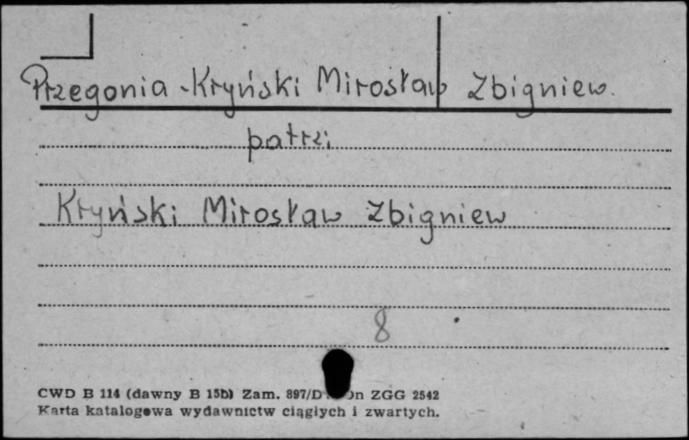 Przegonia-Kryński Mirosław Zbigniew.
patrz:
Kryński Mirosław Zbigniew
8
CWD B 114 (dawny B 15b) Zam. 897/D ZGG 2542
Karta katalogowa wydawnictw ciągłych i zwartych.